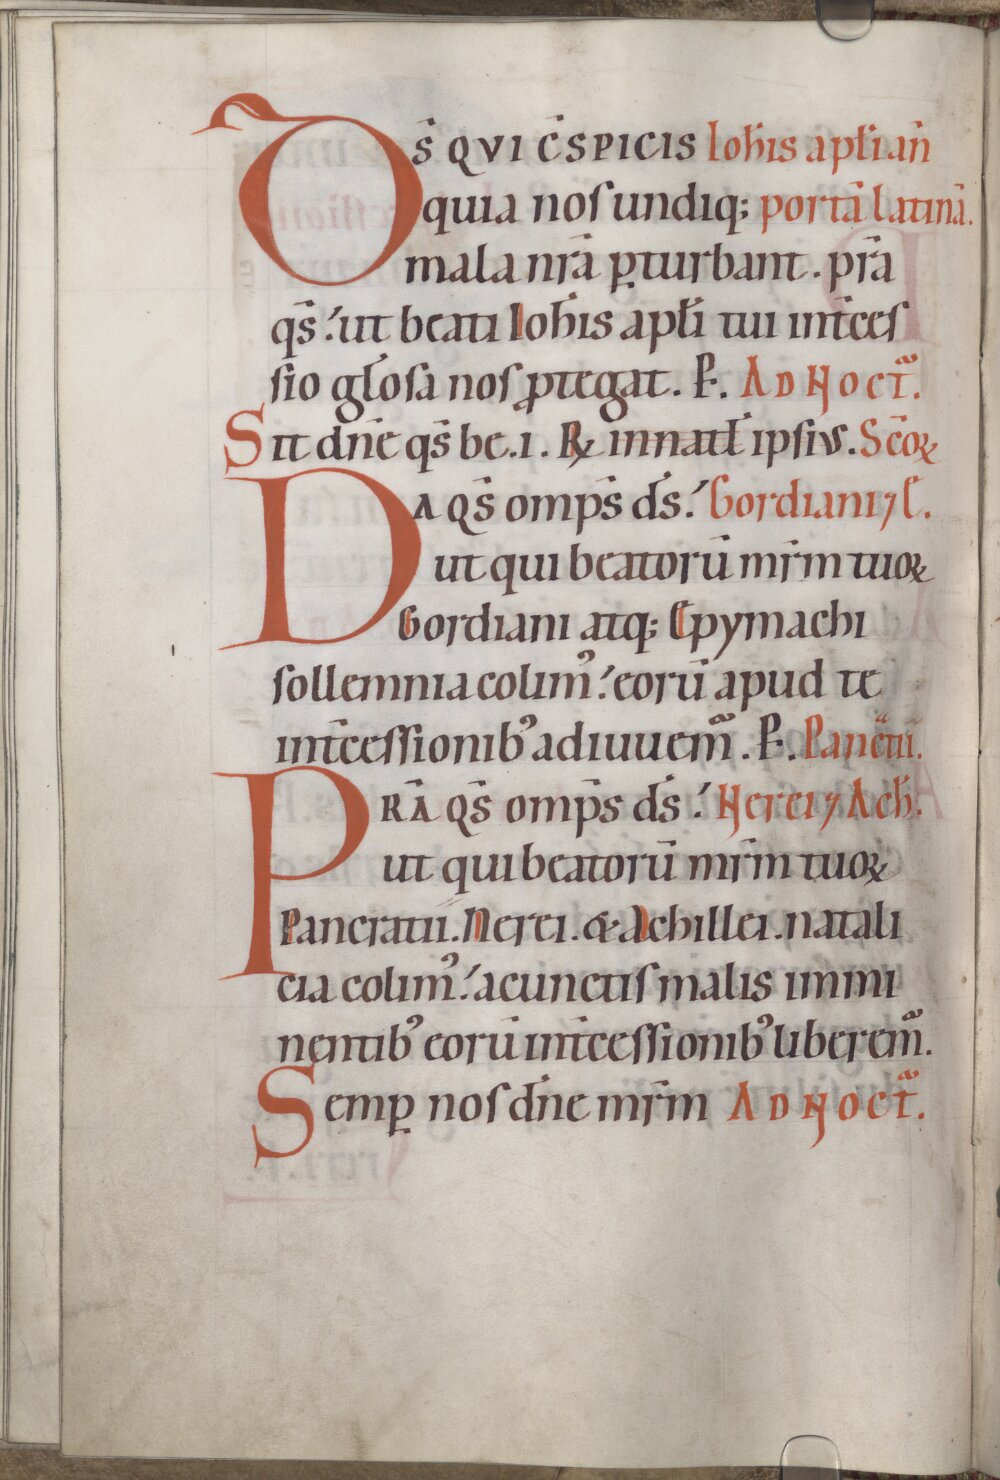 Ds̄ QVI C̄SPICIS Ioh̄is apt̄i an̄
quia nos undiq; portā latinā.
mala nr̄a ꝑturbant. pr̄a
qs̄ ut beati Ioh̄is apt̄i tui int̄ces
sio gl̄osa nos ꝓtegat. P. AD NOCT̄.
Sit dn̄e qs̄ be.i. R inn̄atł ipsius. Sc̄oꝝ
DA QS̄ omp̄s ds̄ Gordiani ⁊ E.
ut qui beatorū mr̄m tuoꝝ
Gordiani atq; Epymachi
sollemnia colimꝰ eorū apud te
int̄cessionibꝰ adiuuem̄. P. Panc̄tii.
PRĀ QS̄ omp̄s ds̄ Nerei ⁊ Ach̄.
ut qui beatorū mr̄m tuoꝝ
Pancratii. Nerei. & Achillei. natali
cia colimꝰ a cunctis malis immi
nentibꝰ eorū int̄cessionibꝰ liberem̄.
Semꝑ nos dn̄e mr̄m AD NOCT̄.